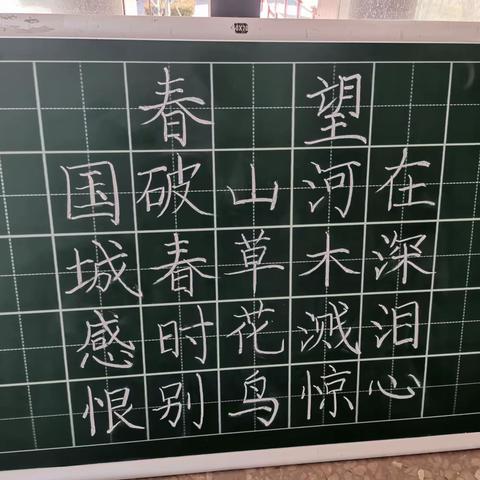 春望
国破山河在
城春草木深
感时花溅泪
恨别鸟惊心